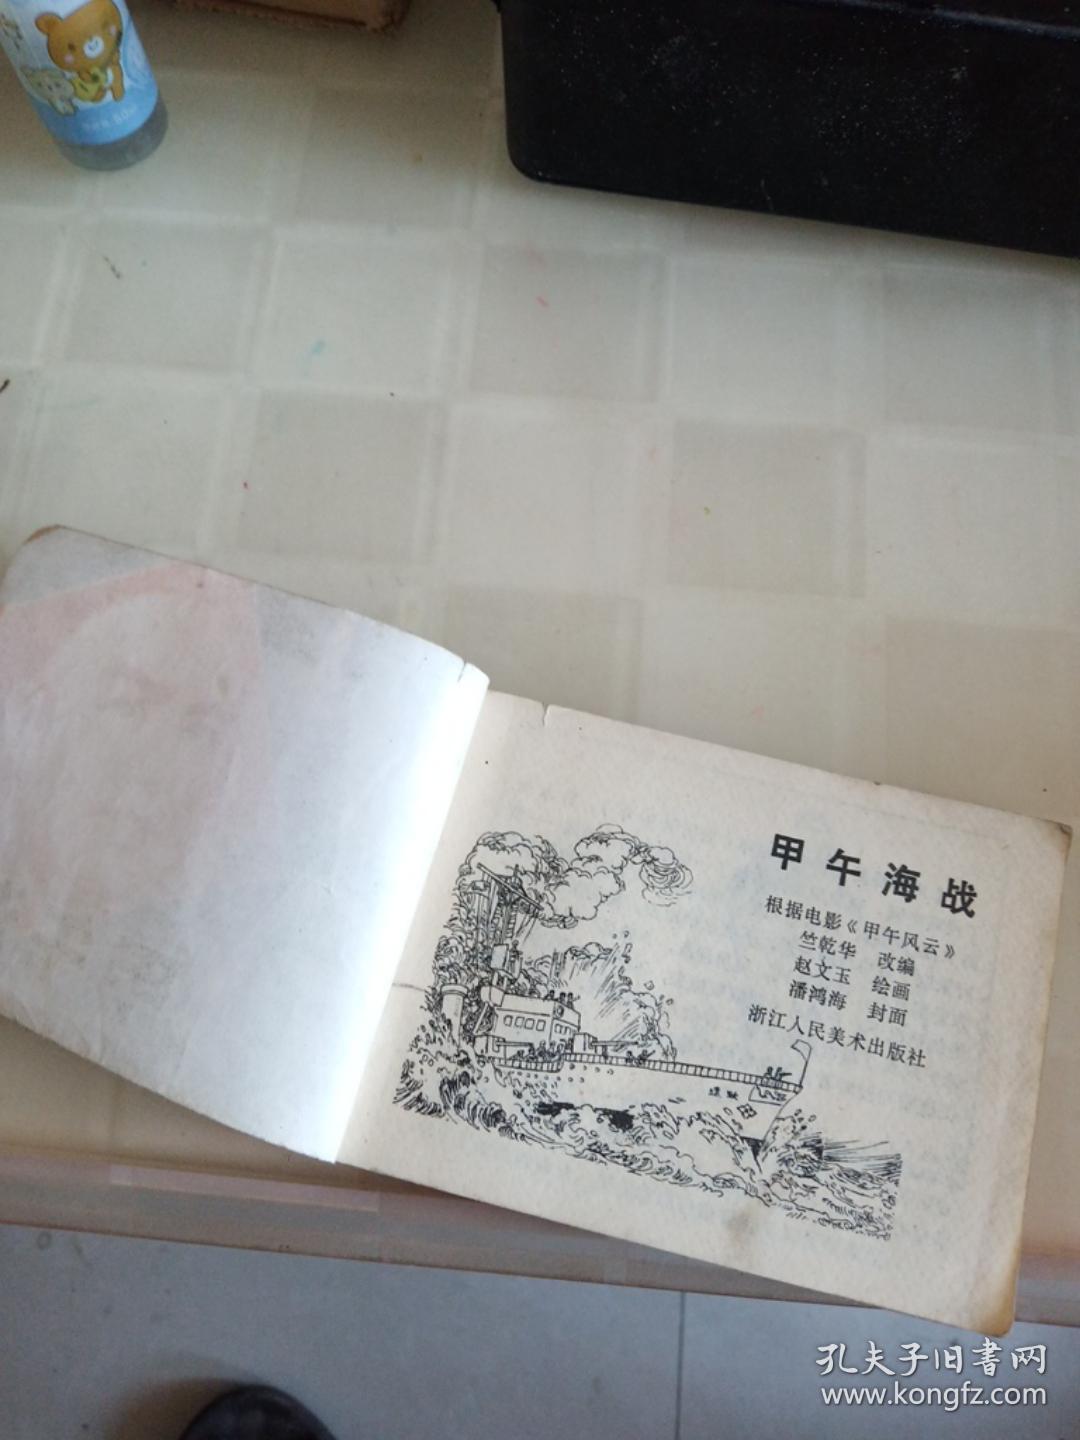 甲午海战
根据电影《甲午风云》
竺乾华 改编
赵文玉 绘画
潘鸿海 封面
浙江人民美术出版社
孔夫子旧書网
www.kongfz.com